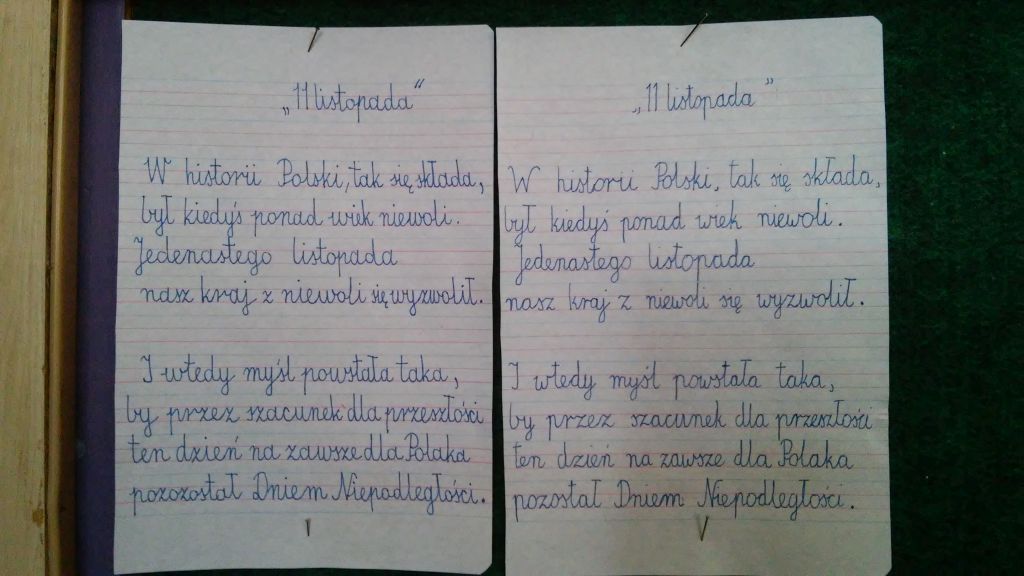 „11 listopada"
W historii Polski, tak się składa,
był kiedyś ponad wiek niewoli.
Jedenastego listopada
nasz kraj z niewoli się wyzwolił.
I wtedy myśl powstała taka,
by przez szacunek dla przeszłości
ten dzień na zawsze dla Polaka
pozozostał Dniem Niepodległości.
„11 listopada"
W historii Polski, tak się składa,
był kiedyś ponad wiek niewoli.
Jedenastego listopada
nasz kraj z niewoli się wyzwolił.
I wtedy myśl powstała taka,
by przez szacunek dla przeszłości
ten dzień na zawsze dla Polaka
pozostał Dniem Niepodległości.